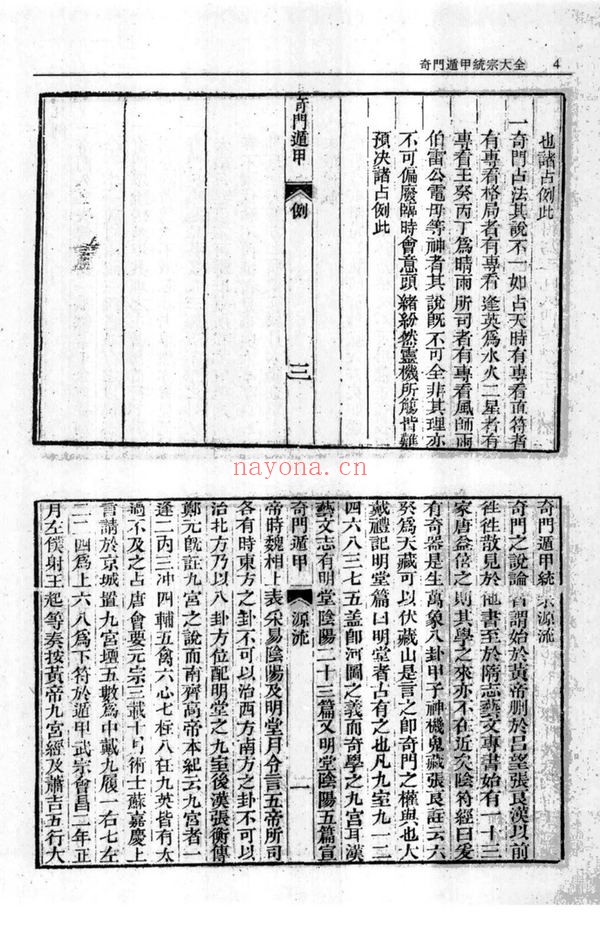 奇門遁甲統宗大全 4
也諸占例此
一奇門占法其說不一如占天時有專看直符者
有專看格局者有專看 逢英爲水火二星者有
專看壬癸丙丁爲晴雨所司者有專看風師雨
伯雷公電母等神者其說旣不可全非其理亦
不可偏廢臨時會意頭緒紛然靈機所觸皆難
預決諸占例此
奇門遁甲 例 三
奇門遁甲統宗源流
奇門之說論者謂始於黃帝删於呂望張良漢以前
徃徃散見於他書至於隋志藝文專書始有一十三
家唐益倍之則其學之來亦不在近矣陰符經曰爰
有奇器是生萬象八卦甲子神機鬼藏張良註云六
癸爲天藏可以伏藏山是言之卽奇門之權與也大
戴禮記明堂篇曰明堂者占有之也凡九室九一二
四六八三七五蓋卽河圖之義而奇學之九宮耳漢
藝文志有明堂陰陽二十三篇又明堂陰陽五篇宣
奇門遁甲 源流 一
帝時魏相上表采易陰陽及明堂月令言五帝所司
各有時東方之卦不可以治西方南方之卦不可以
治北方乃以八卦方位配明堂之九室後漢張衡傳
鄭元旣註九宮之說而南齊高帝本紀云九宮者一
逢二丙三冲四輔五禽六心七柱八任九英皆有太
過不及之占唐會要元宗三載十月術士蘇嘉慶上
言請於京城置九宮壇五數爲中戴九履一右七左
二一四爲上六八爲下符於遁甲武宗會昌二年正
月左僕射王起等奏按黃帝九宮經及蕭吉五行大
nayona.cn